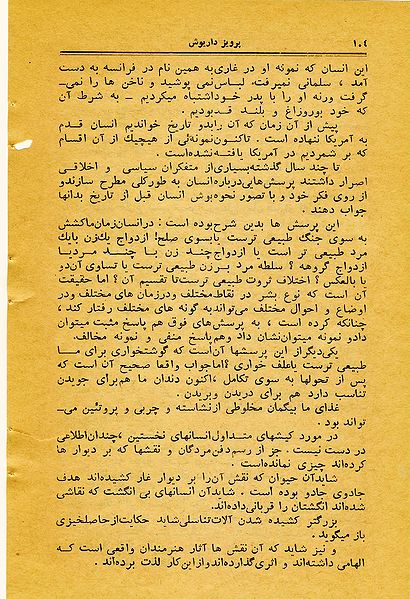 ۱۰٤ پرویز داریوش
این انسان که نمونه او در غاری به همین نام در فرانسه به دست
آمد ، سلمانی نمیرفت، لباس نمی پوشید و ناخن ها را نمی‌ـ
گرفت ورنه او را با پدر خود اشتباه میکردیم ـ به شرط آن
که خود بور و زاغ و بلند قد بودیم .
پیش از آن زمان که آن را بدو تاریخ خواندیم انسان قدم
به آمریکا ننهاده است . تاکنون نمونه‌ئی از هیچیک از آن اقسام
که بر شمردیم در آمریکا یافته نشده است .
تا چند سال گذشته بسیاری از متفکران سیاسی و اخلاقی
اصرار داشتند پرسش‌هایی درباره انسان به طور کلی مطرح سازند و
از روی فکر خود و با تصور نحوه بوش انسان قبل از تاریخ بدانها
جواب دهند .
این پرسش ها بدین شرح بوده است : در انسان زمان ما کشش
به سوی جنگ طبیعی ترست یا بسوی صلح! ازدواج یک زن با یک
مرد طبیعی تر است یا ازدواج چند زن با چند مرد یا
ازدواج گروهه ؟ سلطه مرد بر زن طبیعی ترست یا تساوی آن دو
یا بالعکس ؟ اختلاف ثروت طبیعی ترست تا تقسیم آن ؟ اما حقیقت
آن است که نوع بشر در نقاط مختلف و در زمان های مختلف و در
اوضاع و احوال مختلف می‌تواند به گونه های مختلف رفتار کند ،
چنانکه کرده است ، به پرسش‌های فوق هم پاسخ مثبت میتوان
داد و نمونه میتوان نشان داد و هم پاسخ منفی و نمونه مخالف.
یکی دیگر از این پرسشها آن است که گوشتخواری برای ما
طبیعی ترست یا علف خواری ؟ اما جواب واقعا صحیح آن است که
پس از تحولها به سوی تکامل ، اکنون دندان ما هم برای جویدن
تناسب دارد هم برای دریدن و بریدن .
غذای ما بیگمان مخلوطی از نشاسته و چربی و پروتئین می‌ـ
تواند بود .
در مورد کیشهای متداول انسانهای نخستین ، چندان اطلاعی
در دست نیست . جز از رسم دفن مردگان و نقشها که بر دیوار ها
کرده‌اند چیزی نمانده است .
شاید آن حیوان که نقش آن را بر دیوار غار کشیده‌اند هدف
جادوی جادو بوده است . شاید آن انسانهای بی انگشت که نقاشی
شده‌اند انگشتان را قربانی داده‌اند.
بزرگتر کشیده شدن آلات تناسلی شاید حکایت از حاصلخیزی
باز میگوید .
و نیز شاید که آن نقش ها آثار هنرمندان واقعی است کـه
الهامی داشته‌اند و اثری گذارده‌اند و از این کار لذت برده‌اند .